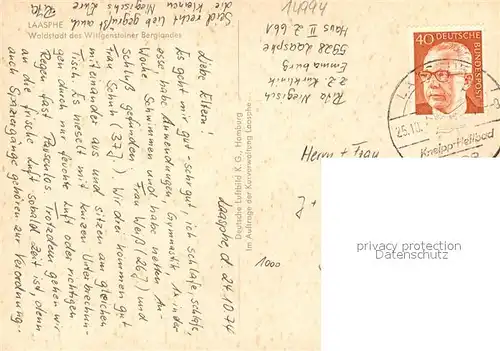 LAASPHE
Waldstadt des Wittgensteiner Berglandes
Laasphe, d. 24.10.74
Liebe Eltern!
Es geht mir gut - sehr gut, ich schlafe, schlafe,
esse habe Anwendungen, Gymnastik 1x in der
Woche Schwimmen und habe netten An-
schluß gefunden. Frau Weiß (26J) und
Frau Schuh (37J). Wir drei kommen gut
miteinander aus und sitzen am gleichen
Tisch. Es nieselt mit kurzen Unterbrechun-
gen durch nur feuchte Luft oder richtigen
Regen fast Pausenlos. Trotzdem gehen wir
an die frische Luft sobald Zeit ist, denn
auch Spaziergänge gehören zur Verordnung.
Seid recht lieb gegrüßt und
die kleinen Niegisch's Eure
Rita
Deutsche Luftbild K.G., Hamburg
Im Auftrage der Kurverwaltung Laasphe
14994
Rita Niegisch
z.Z. Kurklinik
Emmaburg
5928 Laasphe
Haus II Z. 661
Herrn + Frau
1000
40 DEUTSCHE
BUNDESPOST
25.10.
Kneipp-Heilbad
privacy protection
Datenschutz